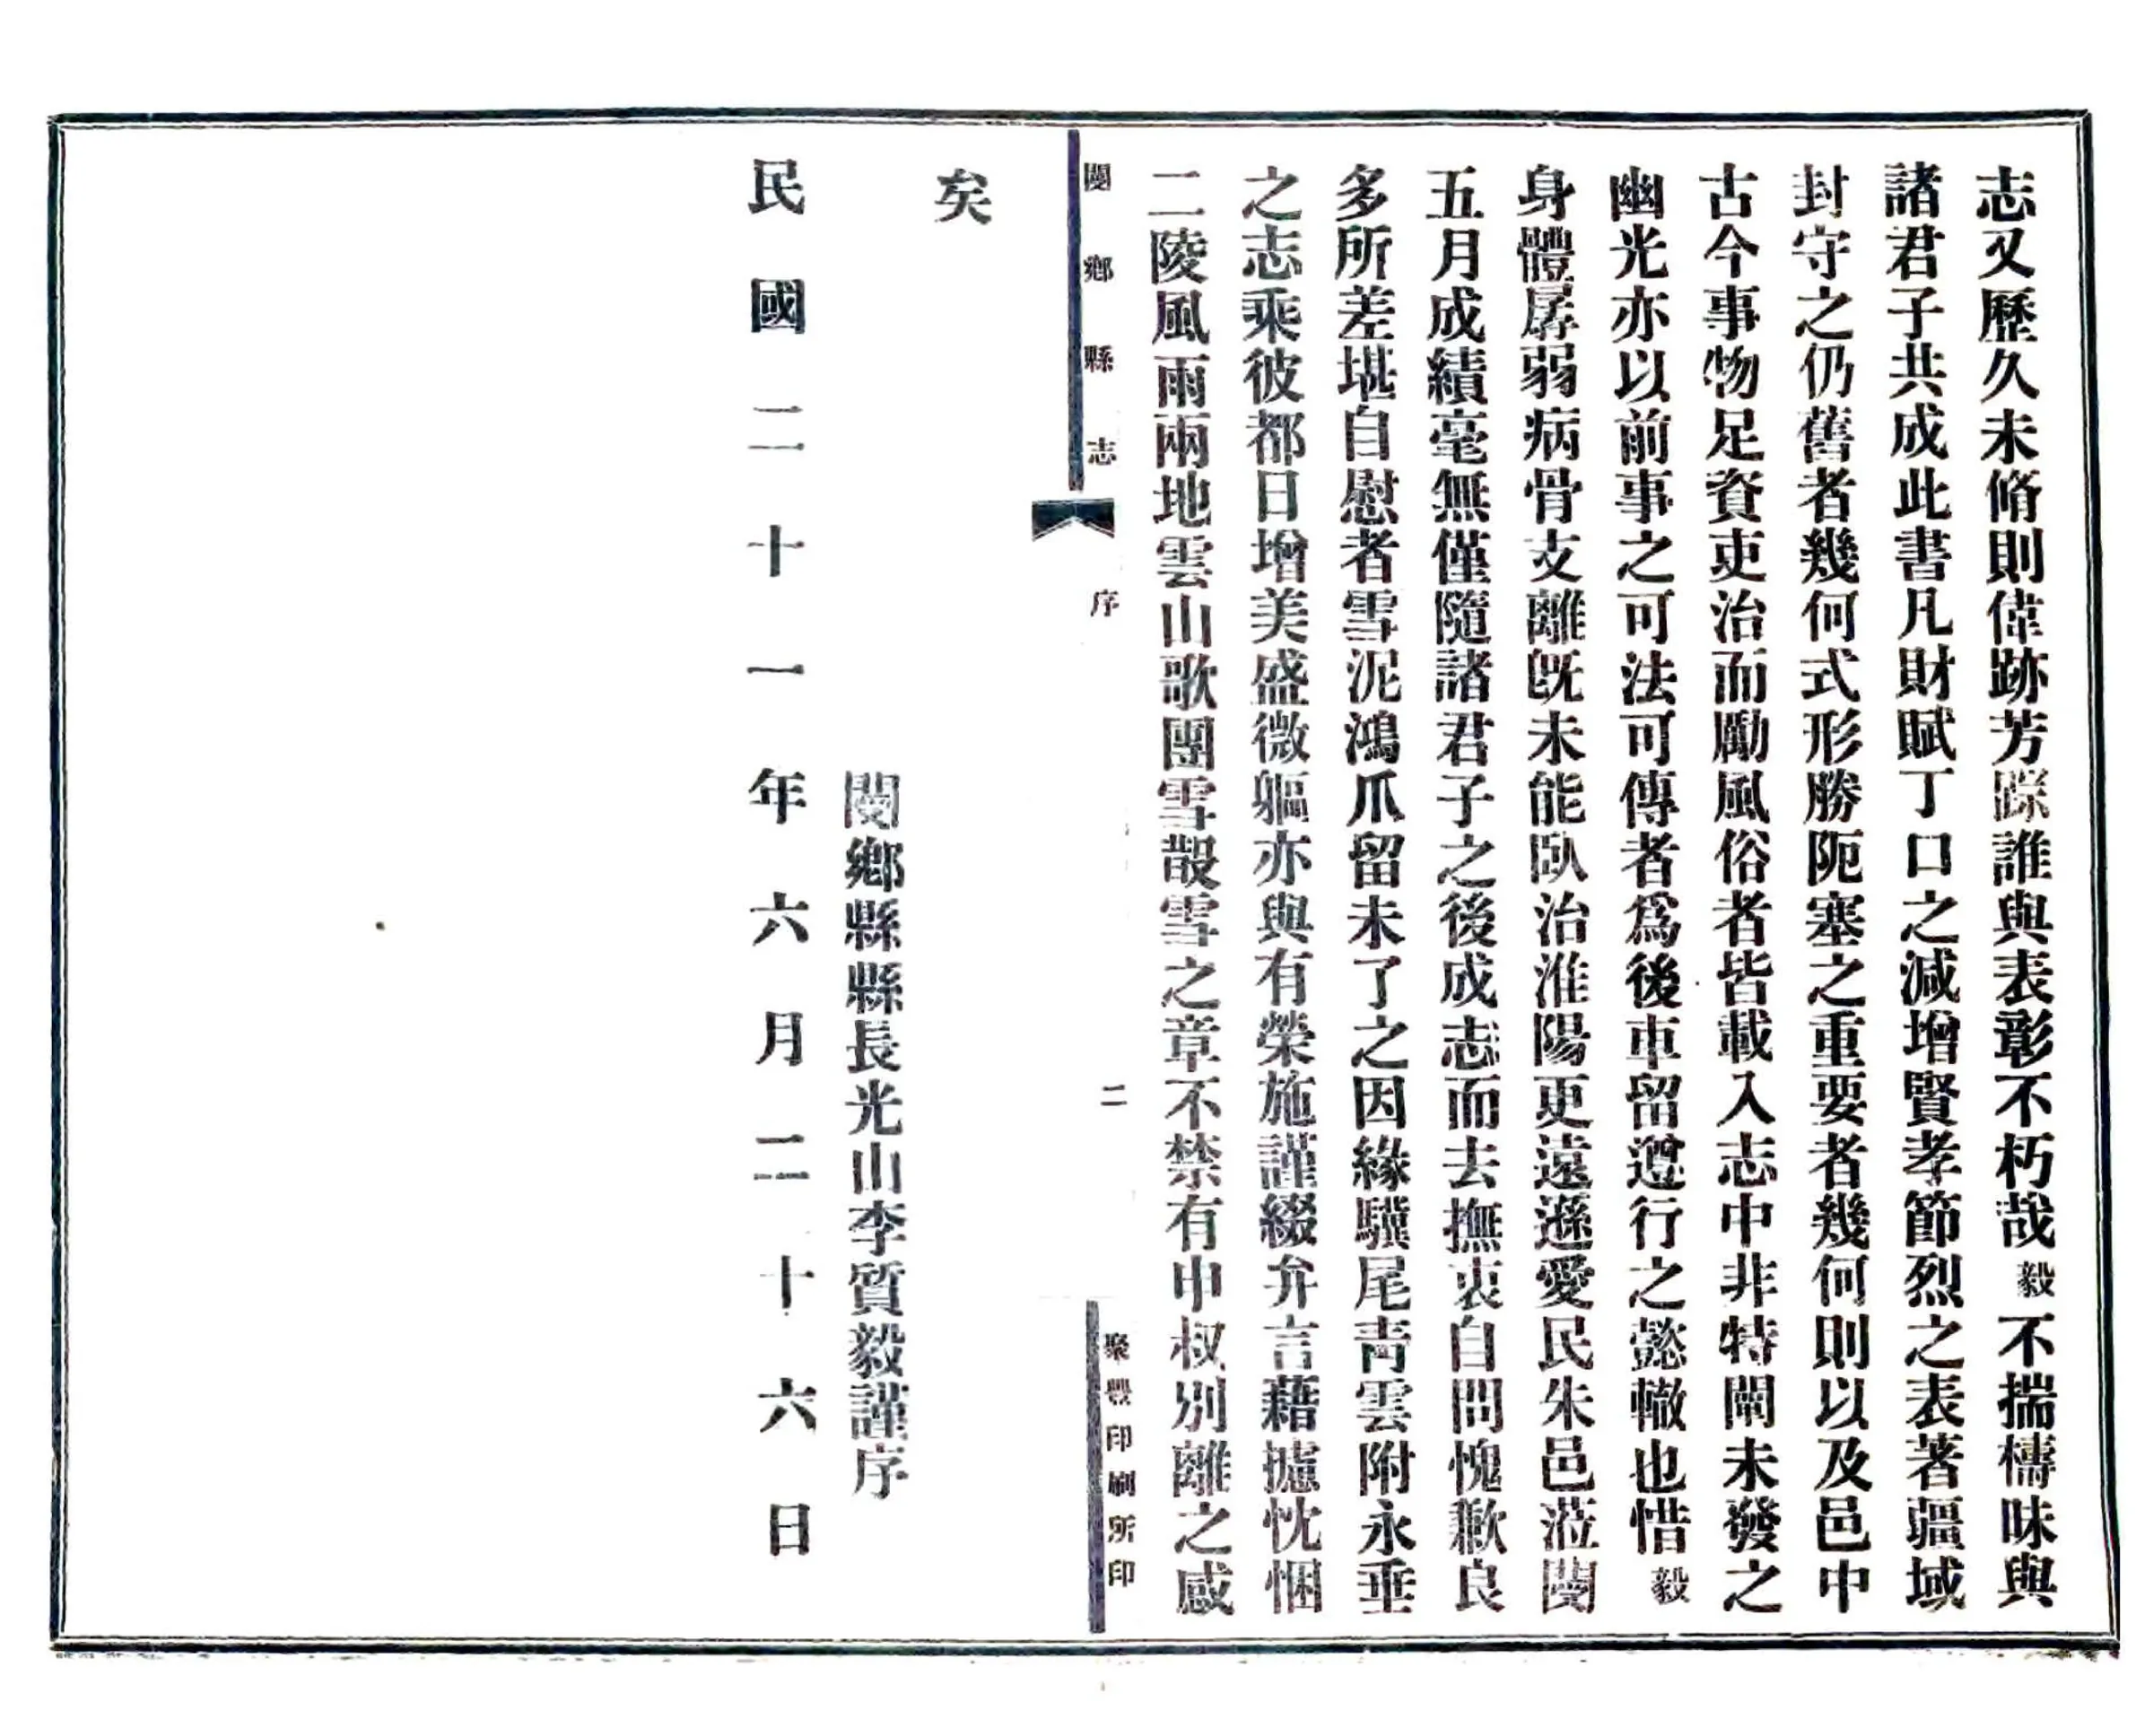 志又歷久未脩則偉跡芳踪誰與表彰不朽哉毅不揣檮昧與
諸君子共成此書凡財賦丁口之減增賢孝節烈之表著疆域
封守之仍舊者幾何式形勝阨塞之重要者幾何則以及邑中
古今事物足資吏治而勵風俗者皆載入志中非特闡未發之
幽光亦以前事之可法可傳者爲後車留遵行之懿轍也惜毅
身體孱弱病骨支離旣未能臥治淮陽更遠遜愛民朱邑蒞閿
五月成績毫無僅隨諸君子之後成志而去撫衷自問愧歉良
多所差堪自慰者雪泥鴻爪留未了之因緣驥尾靑雲附永垂
之志乘彼都日增美盛微軀亦與有榮施謹綴弁言藉攄忱悃
二陵風雨兩地雲山歌團雪散雪之章不禁有申叔別離之感
閿鄉縣志
序
二
聚豐印刷所印
矣
閿鄉縣縣長光山李質毅謹序
民國二十一年六月二十六日